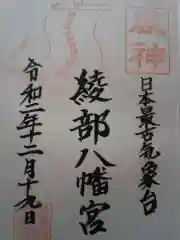 日本最古気象台
綾部八幡宮
令和二年十二月十九日